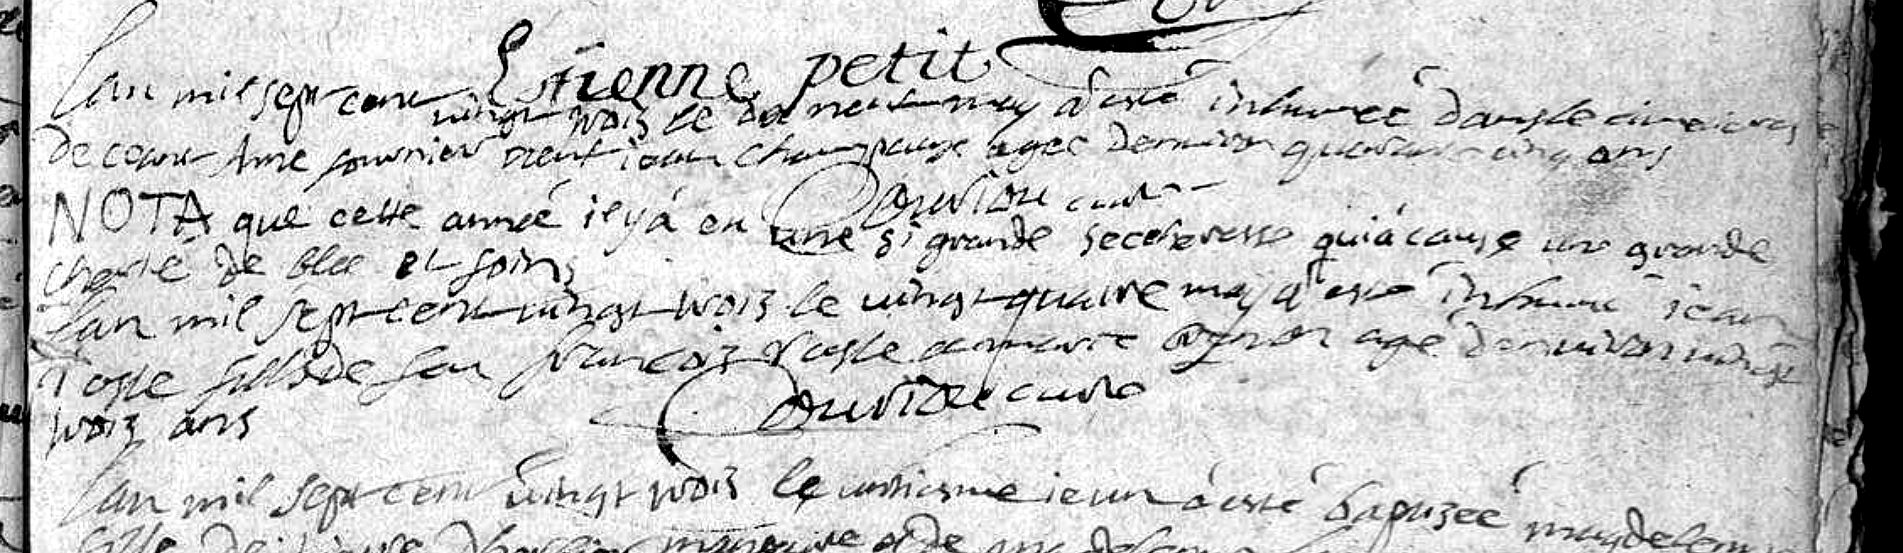 Estienne petit
Lan mil sept cent vingt trois le dix neuf may a esté inhumée dans le cimetiere
de ceans Anne fournier age denviron quarante cinq ans
Douriou curé
NOTA que cette année il y á eu une si grande seccheresse qui á cause une grande
cherté de blee et foins
Lan mil sept cent vingt trois le vingt quatre may a esté inhumé jean
Toste fills de feu francois age denviron vingt
trois ans
Douriou curé
Lan mil sept cent vingt trois le unziesme á esté baptizée magdelene
fille de manoeuvre et de